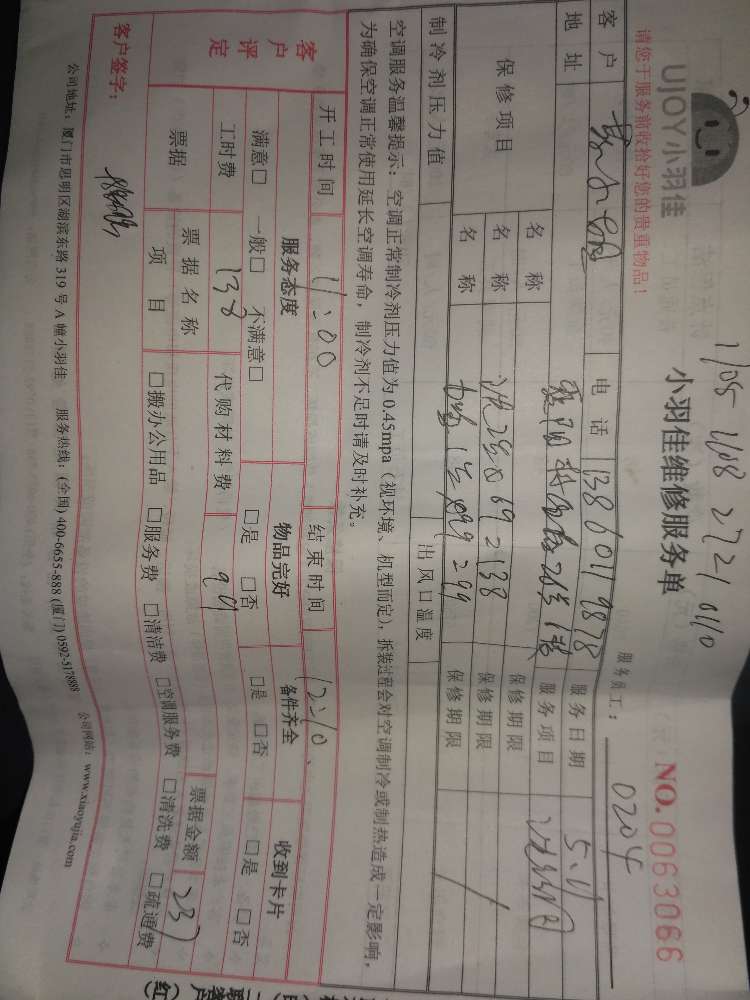 1105 1108 2721 0110
UJOY小羽佳
小羽佳维修服务单
NO. 0063066
请您于服务前收拾好您的贵重物品！
服务员工： 0204
客户
电话 13860119878
服务日期 5.11
地址
服务项目
保修项目
名称
保修期限
名称
保修期限
名称
保修期限
制冷剂压力值
出风口温度
空调服务温馨提示：空调正常制冷剂压力值为0.45mpa（视环境、机型而定），拆装过程会对空调制冷或制热造成一定影响，
为确保空调正常使用延长空调寿命，制冷剂不足时请及时补充。
开工时间 11:00
结束时间 12:10
客户评定
服务态度
物品完好
备件齐全
收到卡片
满意□ 一般□ 不满意□
□是 □否
□是 □否
□是 □否
工时费 138
代购材料费 99
票据
票据名称
票据金额 237
项目
□搬办公用品 □服务费 □清洁费 □空调服务费 □清洗费 □疏通费
客户签字：
公司地址：厦门市思明区湖滨东路319号A幢小羽佳 服务热线：(全国) 400-6655-888 (厦门) 0592-5178888 公司网站：www.xiaoyujia.com